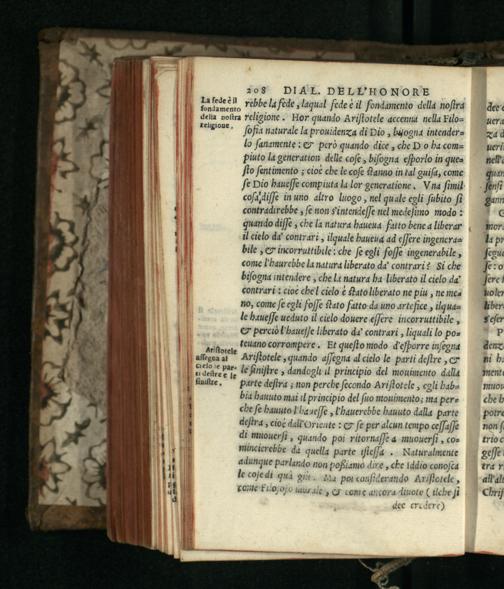 208 DIAL. DELL'HONORE
La fede è il
fondamento
della nostra
religione.
rebbe la fede, laqual fede è il fondamento della nostra
religione. Hor quando Aristotele accenna nella Filo-
sofia naturale la prouidenza di Dio, bisogna intender-
lo sanamente: & però quando dice, che Dio ha com-
piuto la generation delle cose, bisogna esporlo in que-
sto sentimento; cioè che le cose stanno in tal guisa, come
se Dio hauesse compiuta la lor generatione. Vna simil
cosa disse in uno altro luogo, nel quale egli subito si
contradirebbe, se non s'intendesse nel medesimo modo:
quando disse, che la natura haueua fatto bene a liberar
il cielo da' contrari, ilquale haueua ad essere ingenera-
bile, & incorruttibile: che se egli fosse ingenerabile,
come l'haurebbe la natura liberato da' contrari? Si che
bisogna intendere, che la natura ha liberato il cielo da'
contrari: cioè che'l cielo è stato liberato ne piu, ne me-
no, come se egli fosse stato fatto da uno artefice, ilqua-
le hauesse ueduto il cielo douere essere incorruttibile,
& perciò l'hauesse liberato da' contrari, liquali lo po-
teuano corrompere. Et questo modo d'esporre insegna
Aristotele
assegna al
cielo le par-
ti destre e le
sinistre.
Aristotele, quando assegna al cielo le parti destre, &
le sinistre, dandogli il principio del mouimento dalla
parte destra; non perche secondo Aristotele, egli hab-
bia hauuto mai il principio del suo mouimento; ma per-
che se hauuto l'hauesse, l'hauerebbe hauuto dalla parte
destra, cioè dall'Oriente: & se per alcun tempo cessasse
di muouersi, quando poi ritornasse a muouersi, co-
mincierebbe da quella parte istessa. Naturalmente
adunque parlando non possiamo dire, che Iddio conosca
le cose di quà giù. Ma poi considerando Aristotele,
come Filosofo naturale, & come ancora diuoto (ilche si
dee credere)